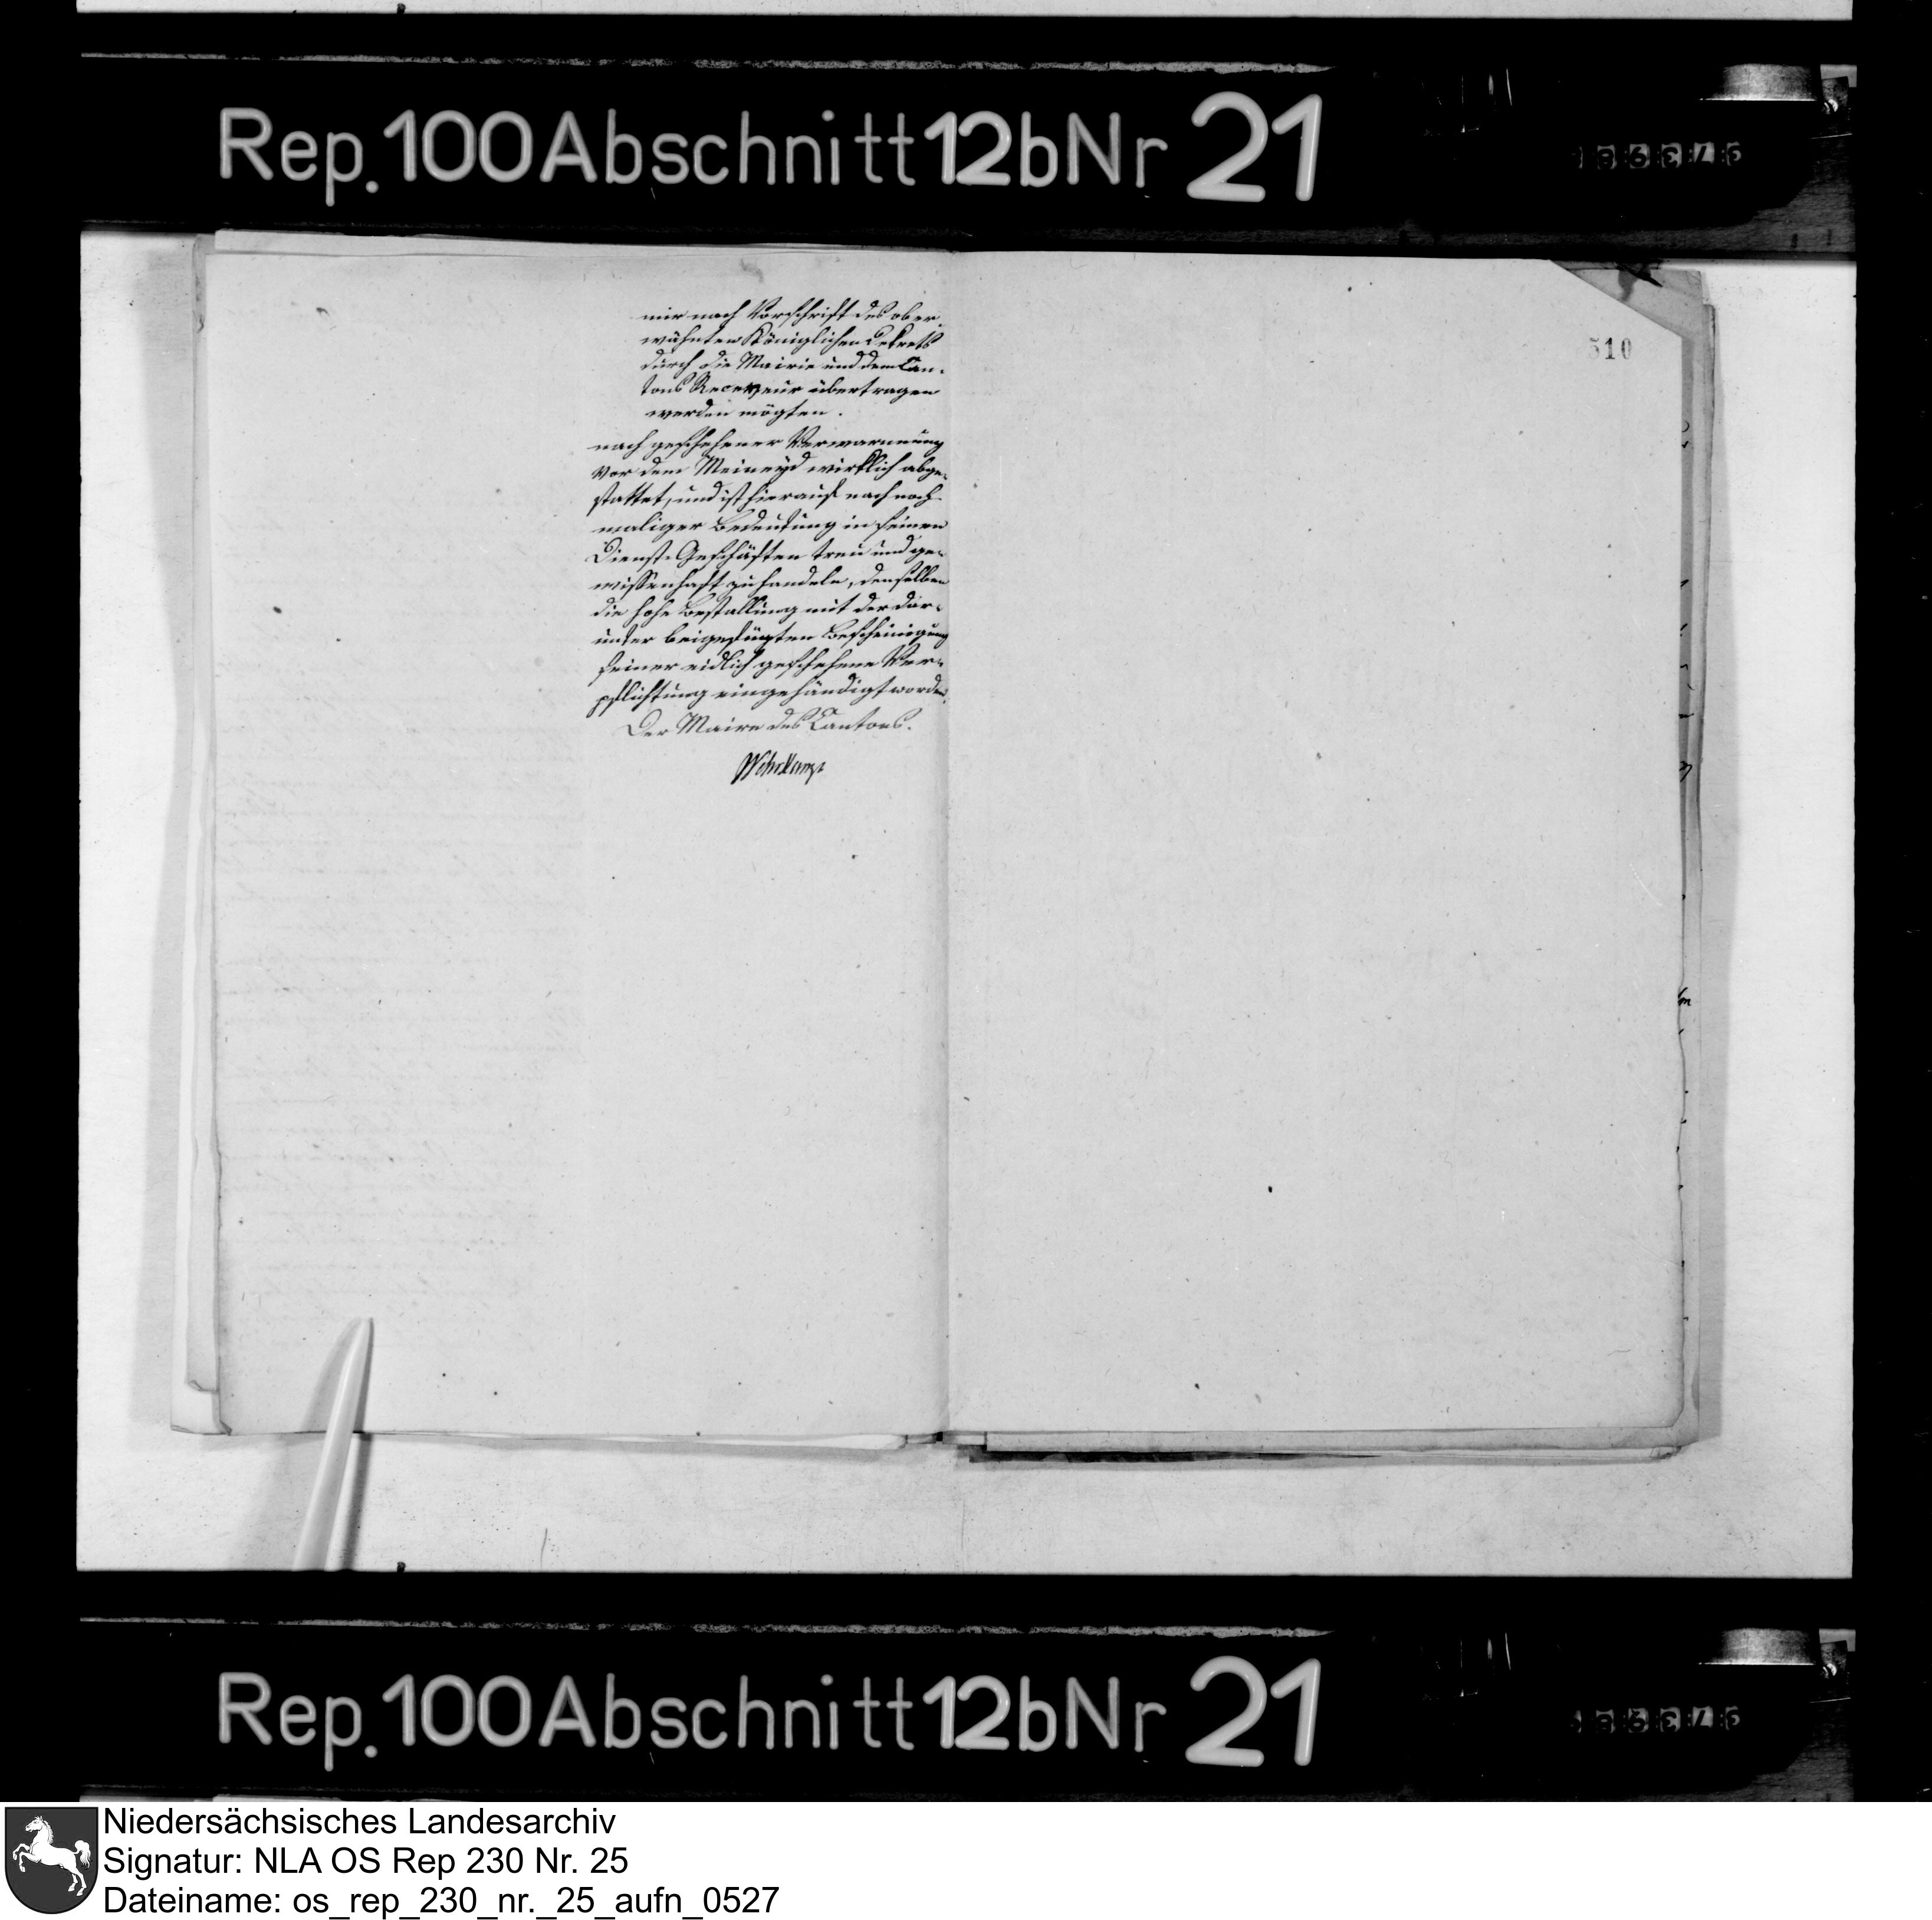 Rep. 100 Abschnitt 12b Nr 21
mir nach Vorschrift des ober-
wähnten Königlichen Dekrets
durch die Mairie und dem Can-
tons Receveur übertragen
werden mögten.
nach geschehener Verwarnung
vor dem Meineyd wirklich abge-
stattet, und ist hierauf nach noch-
maliger Bedeutung in seinen
Dienst-Geschäften treu und ge-
wissenhaft zu handeln, denselben
die hohe Bestallung mit der dar-
unter beigefügten Bescheinigung
seiner eidlich geschehene Ver-
pflichtung eingehändigt worden.
Der Maire des Cantons.
510
Rep. 100 Abschnitt 12b Nr 21
Niedersächsisches Landesarchiv
Signatur: NLA OS Rep 230 Nr. 25
Dateiname: os_rep_230_nr._25_aufn_0527